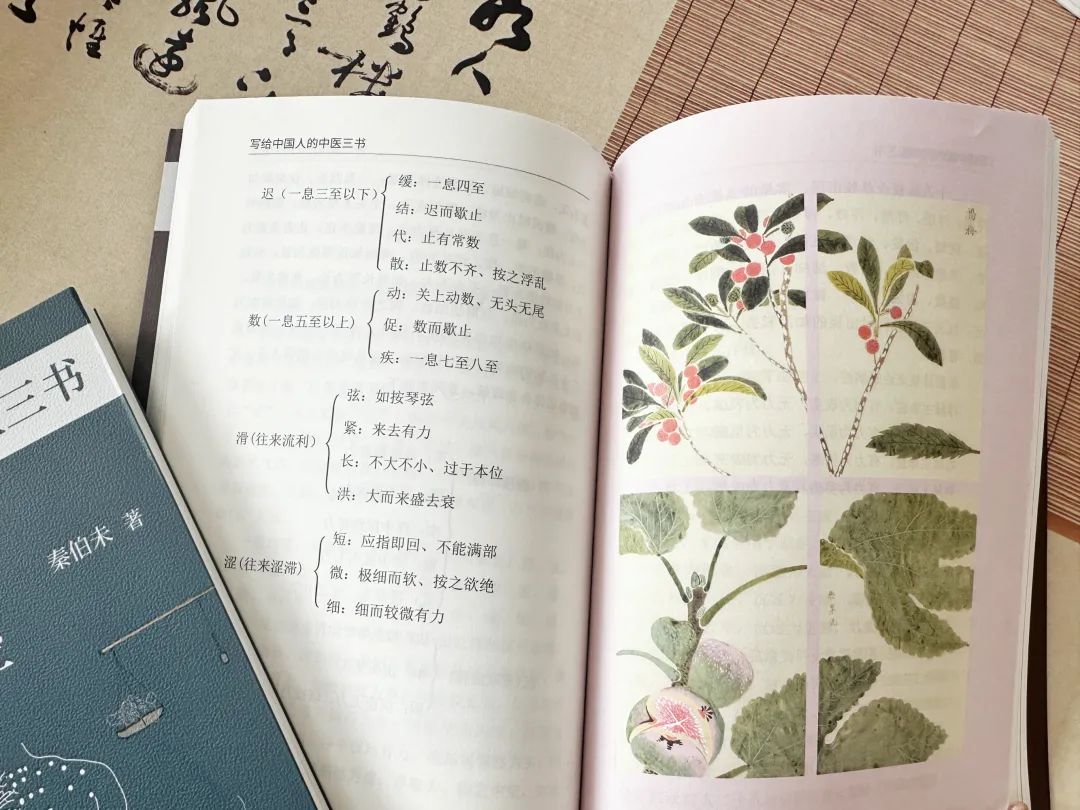 写给中国人的中医三书
迟（一息三至以下）
缓：一息四至
结：迟而歇止
代：止有常数
散：止数不齐、按之浮乱
数(一息五至以上)
动：关上动数、无头无尾
促：数而歇止
疾：一息七至八至
滑(往来流利）
弦：如按琴弦
紧：来去有力
长：不大不小、过于本位
洪：大而来盛去衰
涩(往来涩滞）
短：应指即回、不能满部
微：极细而软、按之欲绝
细：细而较微有力
三书
秦伯未 著